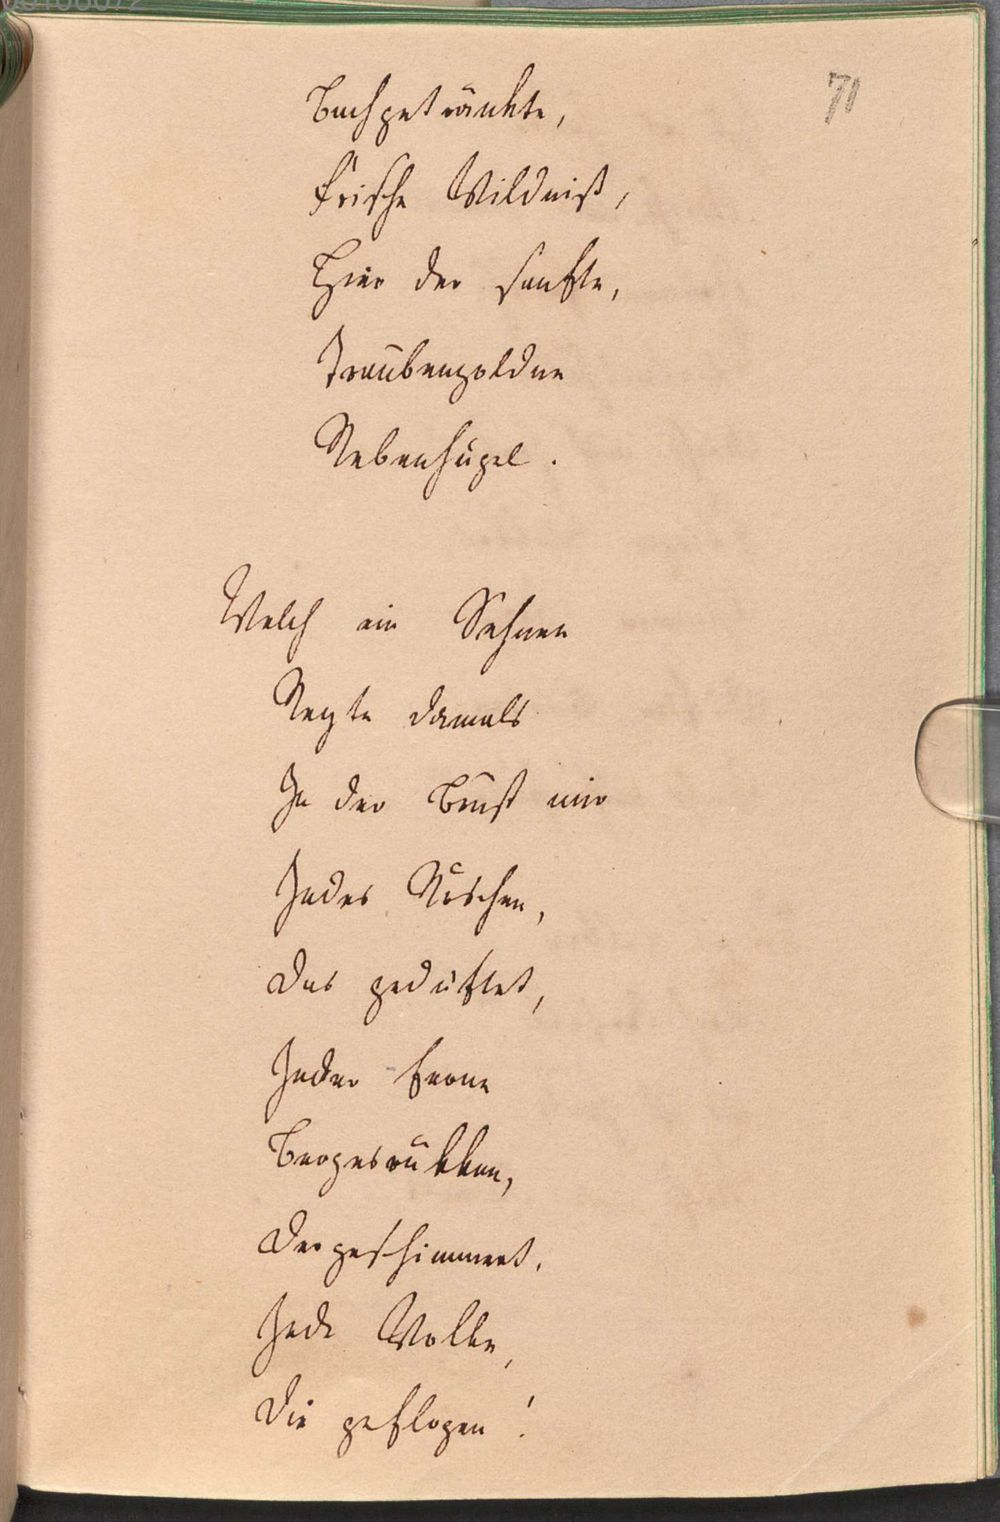 71
Bachgetränkte,
Frische Wildniß,
Hier der sanfte,
Traubengoldne
Rebenhügel.
Welch ein Sehnen
Regte damals
In der Brust mir
Jedes Röschen,
Das geduftet,
Jeder ferne
Bergesrükken,
Der geschimmert,
Jede Wolke,
Die geflogen!